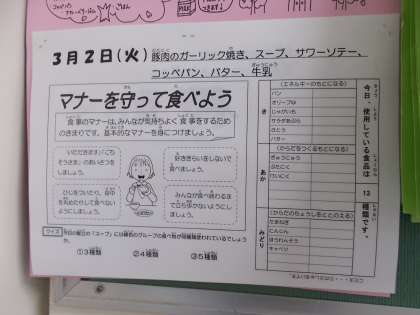 3月2日(火) 豚肉のガーリック焼き、スープ、サワーソテー、
コッペパン、バター、牛乳
マナーを守って食べよう
食事のマナーは、みんなが気持ちよく食事をするため
のきまりです。基本的なマナーを身につけましょう。
「いただきます」「ごち
そうさま」のあいさつを
しましょう。
好ききらいをしないで
食べましょう。
ひじをついたり、背中
を丸めたりして食べない
ようにしましょう。
みんなが食べ終わるま
で立ち歩かないように
しましょう。
クイズ
①3種類 ②4種類 ③5種類
今日、使用している食品は 13 種類です。
き
(エネルギーのもとになる)
パン
オリーブゆ
じゃがいも
サラダあぶら
さとう
バター
あか
(からだをつくるもとになる)
ぎゅうにゅう
ぶたにく
みどり
(からだのちょうしをととのえる)
たまねぎ
にんじん
ほうれんそう
キャベツ